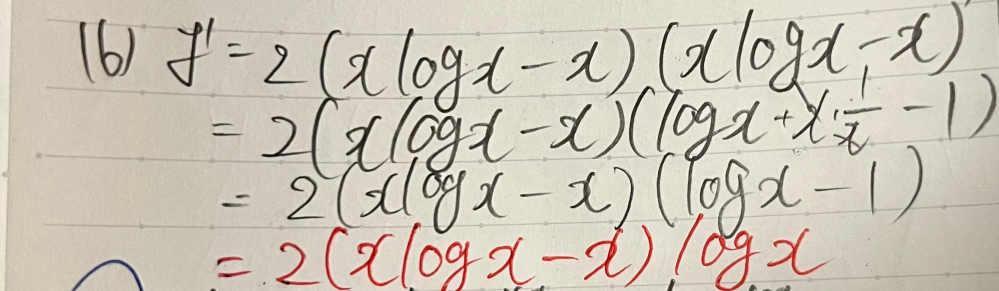 (6) y' = 2(x log x - x)(x log x - x)'
= 2(x log x - x)(log x + x · 1/x - 1)
= 2(x log x - x)(log x - 1)
= 2(x log x - x) log x